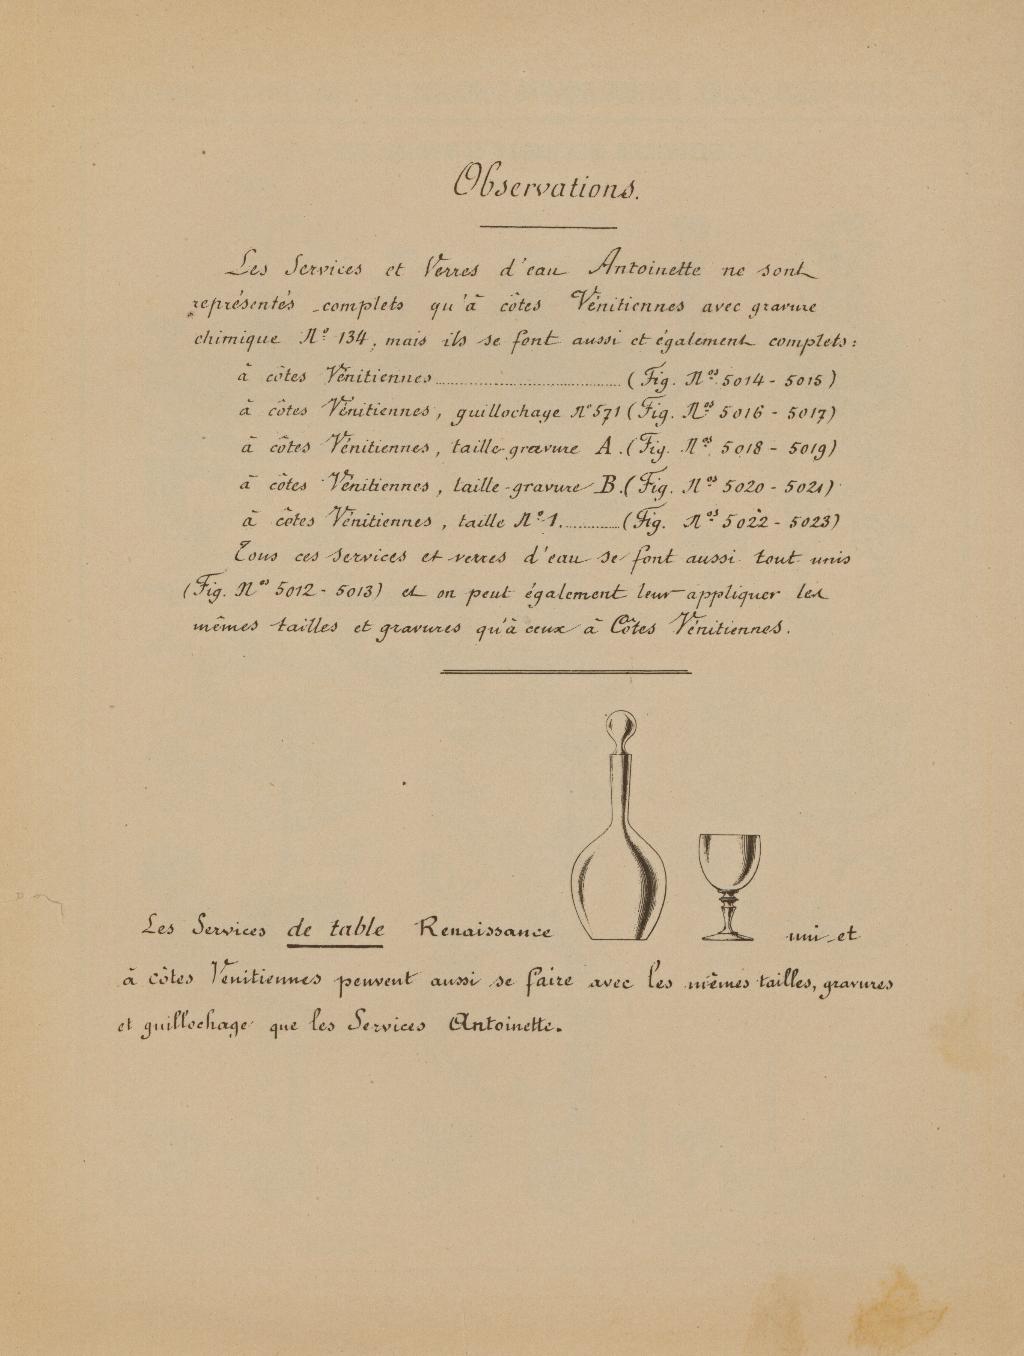 Observations.
Les Services et Verres d'eau Antoinette ne sont
représentés complets qu'à côtes Vénitiennes avec gravure
chimique No 134, mais ils se font aussi et également complets :
à côtes Vénitiennes.......................................(Fig. Nos 5014 - 5015)
à côtes Vénitiennes, guillochage No 571 (Fig. Nos 5016 - 5017)
à côtes Vénitiennes, taille-gravure A.(Fig. Nos 5018 - 5019)
à côtes Vénitiennes, taille-gravure B.(Fig. Nos 5020 - 5021)
à côtes Vénitiennes, taille No 1............(Fig. Nos 5022 - 5023)
Tous ces services et verres d'eau se font aussi tout unis
(Fig. Nos 5012 - 5013) et on peut également leur appliquer les
mêmes tailles et gravures qu'à ceux à Côtes Vénitiennes.
Les Services de table Renaissance uni et
à côtes Vénitiennes peuvent aussi se faire avec les mêmes tailles, gravures
et guillochage que les Services Antoinette.